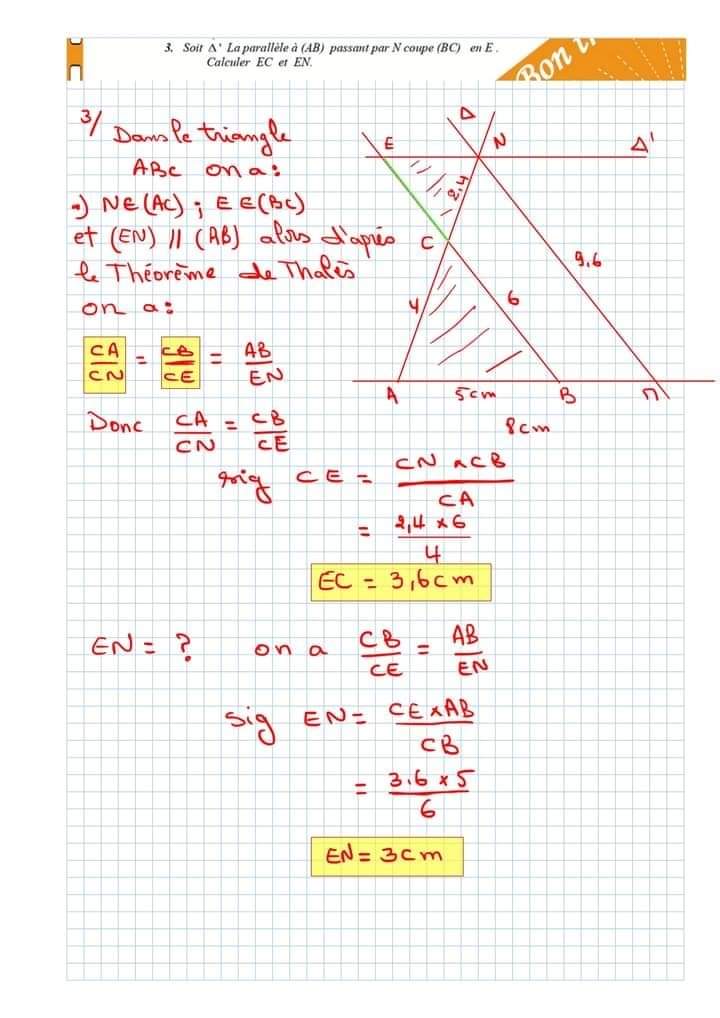 3. Soit Δ' La parallèle à (AB) passant par N coupe (BC) en E .
Calculer EC et EN.
Bon
3/ Dans le triangle
ABC on a:
•) N∈(AC) ; E∈(BC)
et (EN) // (AB) alors d'après
le Théorème de Thalès
on a:
CA/CN = CB/CE = AB/EN
Donc CA/CN = CB/CE
sig CE = CN × CB / CA
= 2,4 × 6 / 4
EC = 3,6cm
EN = ? on a CB/CE = AB/EN
Sig EN = CE × AB / CB
= 3.6 × 5 / 6
EN = 3cm
Δ
E
N
Δ'
2,4
C
9,6
4
6
A
5cm
B
M
8cm